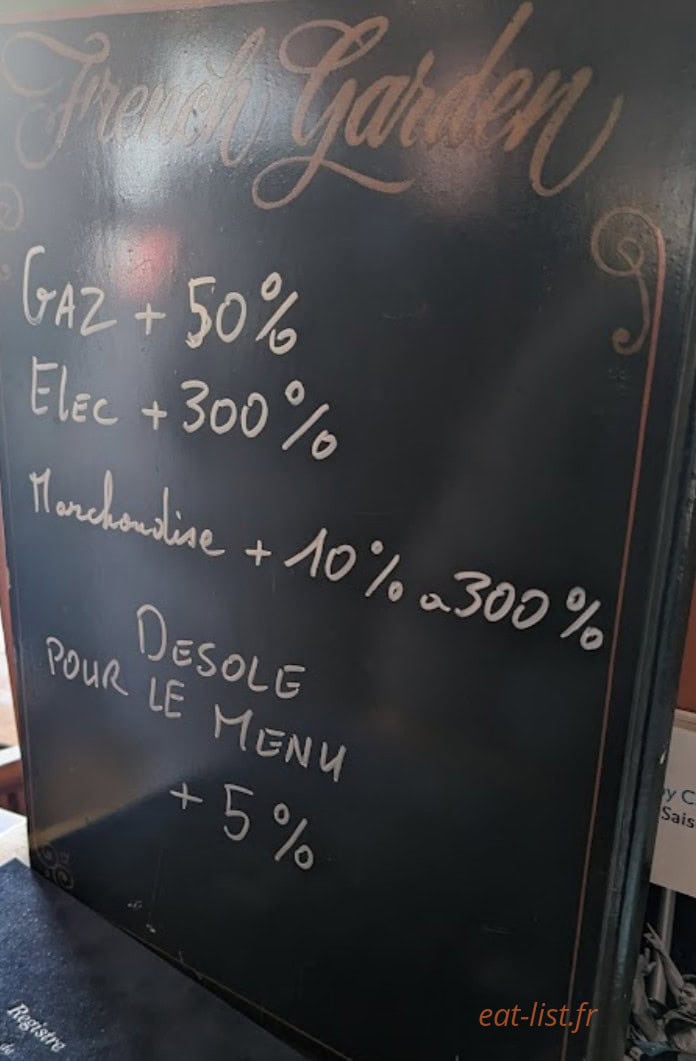 French Garden
GAZ + 50%
ELEC + 300%
Marchandise + 10% a 300%
DESOLE
POUR LE MENU
+ 5%
y C
Sais
Registre
de
eat-list.fr